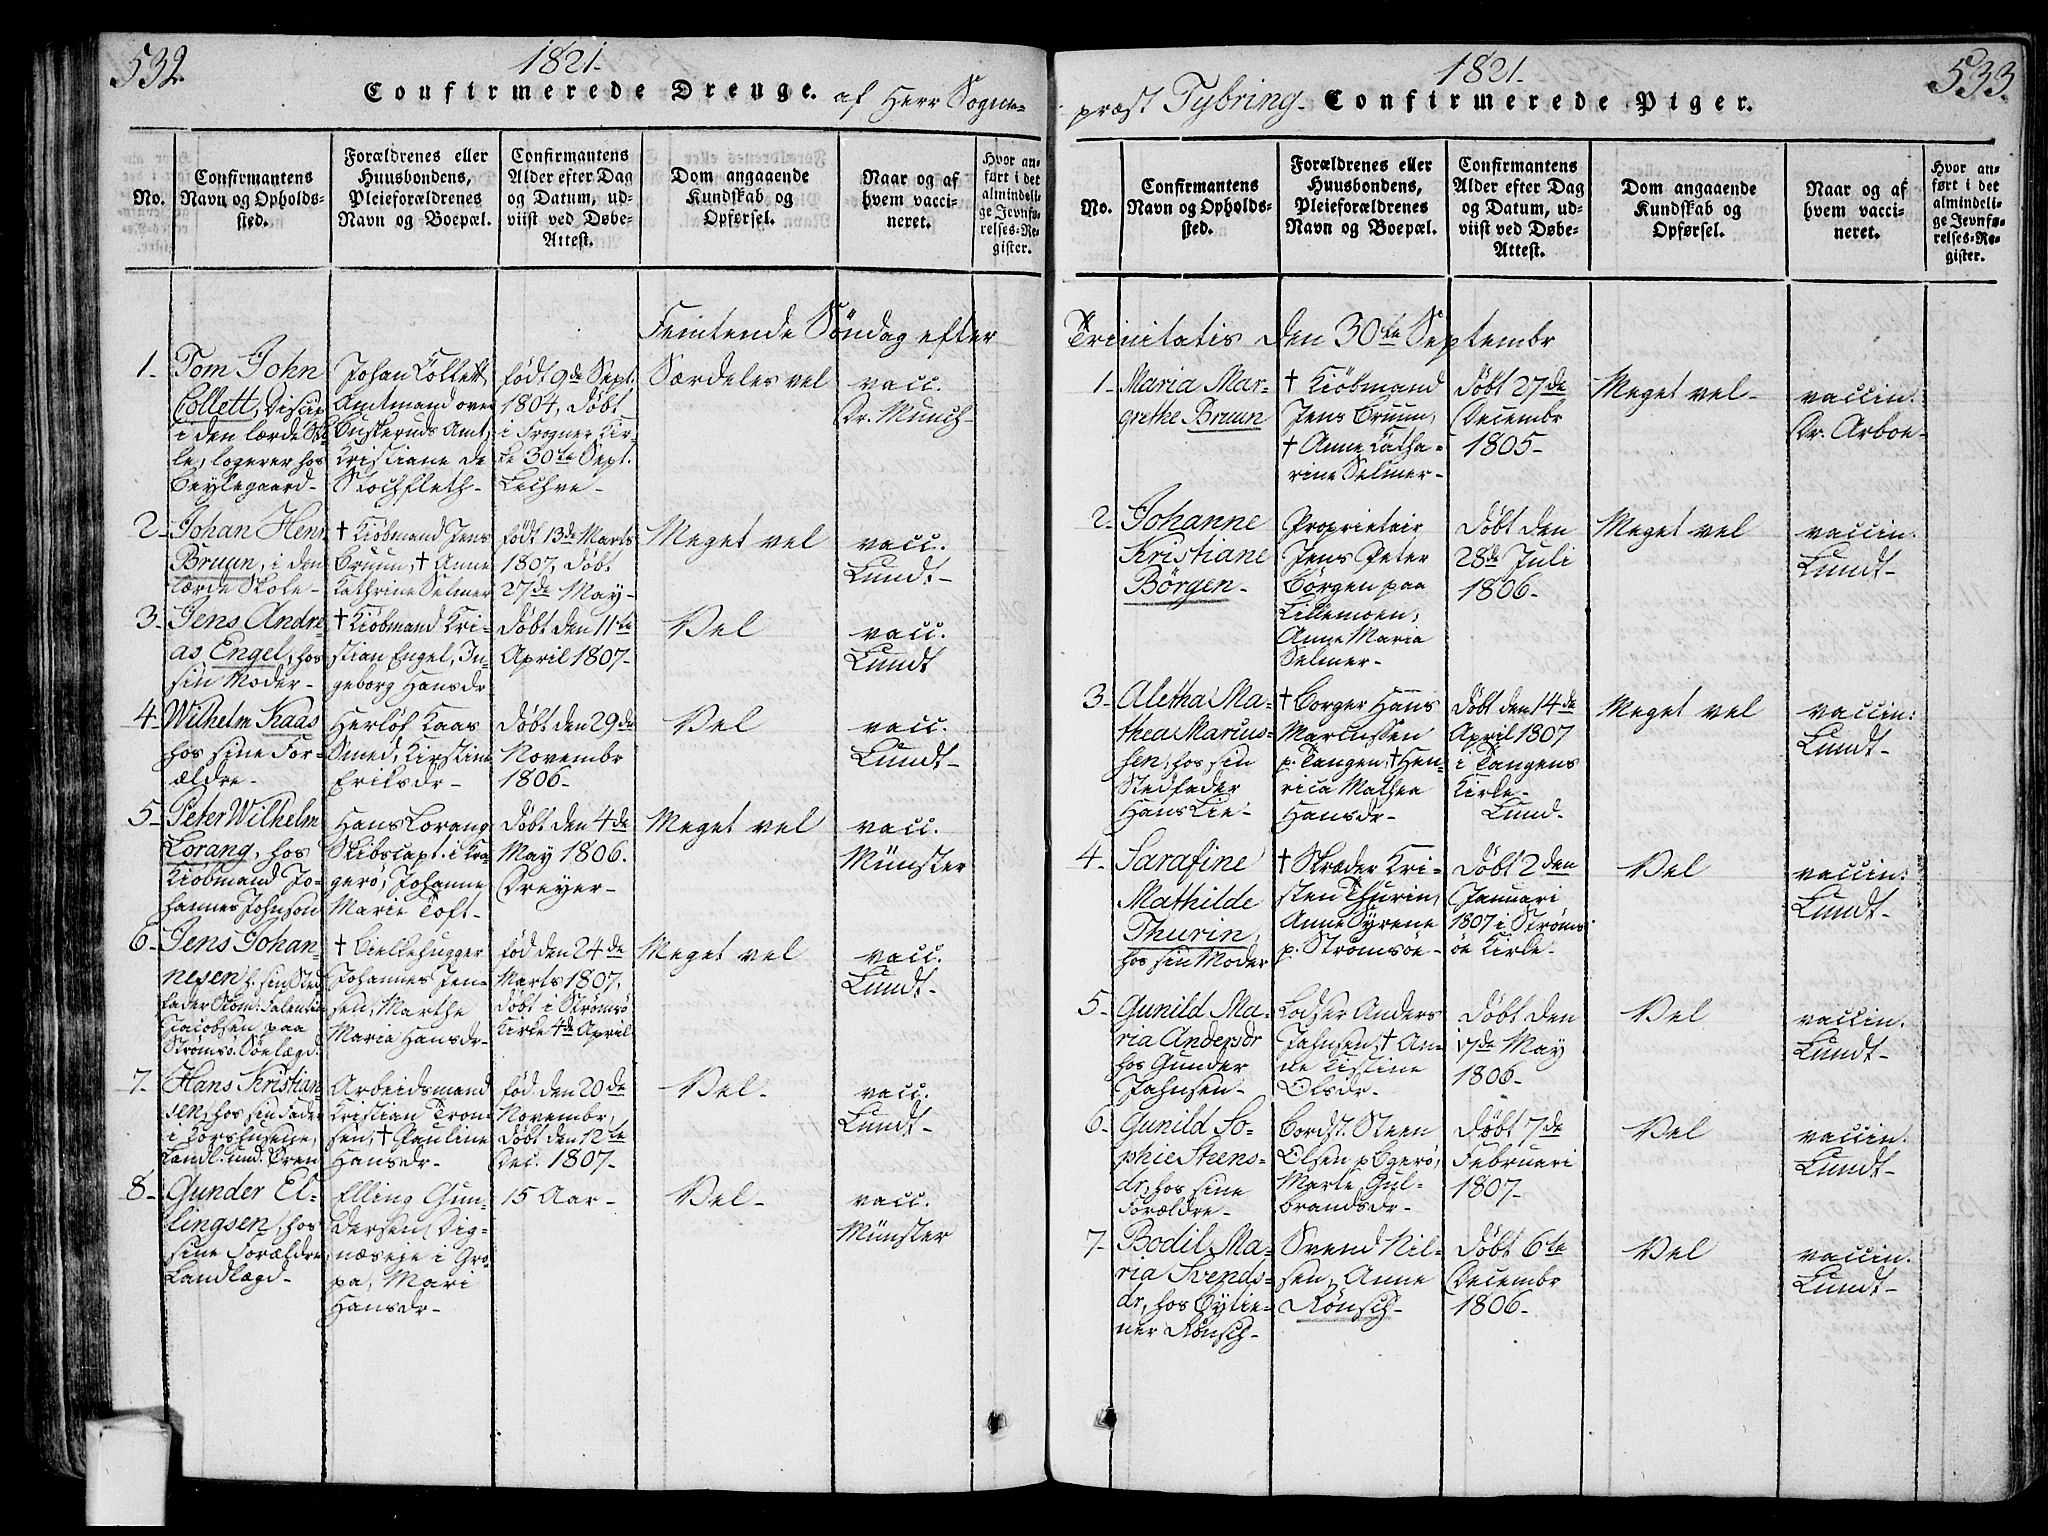 532.
1821.
Confirmerede Drenge. af Herr Sogne-
No.
Confirmantens Navn og Opholds-sted.
Forældrenes eller Huusbondens, Pleieforældrenes Navn og Boepæl.
Confirmantens Alder efter Dag og Datum, ud-viist ved Døbe-Attest.
Dom angaaende Kundskab og Opførsel.
Naar og af hvem vacci-neret.
Hvor an-ført i det almindeli-ge Jevnfø-relses-Re-gister.
Femtende Söndag efter
1-
Tom John
Collett, Discip
i den lærde Sko-
le, logerer hos
Beylegaard-
Johan Collett
Amtmand over
Buskeruds Amt,
Kristiane de
Stochfleth-
født 9de Sept.
1804, døbt
i Frogner Kir-
ke 30te Sept.
Særdeles vel
vacc.
Dr. Munch-
2-
Johan Henr.
Bruun, i den
lærde Skole-
† Kiöbmand Jens
Bruun, † Anne
Kathrine Selmer
født 13de Marts
1807, døbt
27de May-
Meget vel
vacc.
Lundt-
3-
Jens Andre
as Engel, hos
sin Moder-
† Kiöbmand Kri-
stian Engel, In-
geborg Hansdr
Døbt den 11te
April 1807-
Vel
vacc.
Lundt
4-
Wilhelm Kaas
hos sine For-
ældre-
Herlöf Kaas
Smed, Kirstine
Eriksdr-
Døbt den 29de
Novembr
1806-
Vel
vacc.
Lundt-
5-
Peter Wilhelm
Lorang, hos
Kiöbmand Jo-
hannes Johnson
Hans Lorang
Skibscapt. i Kra-
gerø, Johanne
Marie Toft-
Døbt den 4de
May 1806.
Dreyer-
Meget vel
vacc.
Münster
6-
Jens Johan-
nesen h. sin Sted
fader Skom: Valentin
Jacobsen paa
Strømsö. Söelægd.
† Bielkehugger
Johannes Jen-
sen, Marthe
Maria Hansdr-
fød den 24de
Marts 1807.
döbt i Strømsö
Kirke 4de April
Meget vel
vacc.
Lundt-
7-
Hans Kristian-
sen, hos sin Fader
i Korshusene,
Landl. und. Bren
Arbeidsmand
Kristian Tron-
sen, † Pauline
Hansdr-
fød. den 20de
Novembr,
döbt den 12te
Dec. 1807-
Vel-
vacc.
Lundt-
8-
Gunder El-
lingsen, hos
sine Forældre
Landlægd-
Elling Gun-
dersen
næseje i Gro-
pa, Mari
Hansdr-
15 Aar-
Vel-
vacc.
Münster
1821.
533.
præst Tybring- Confirmerede Piger.
No.
Confirmantens Navn og Opholds-sted.
Forældrenes eller Huusbondens, Pleieforældrenes Navn og Boepæl.
Confirmantens Alder efter Dag og Datum, ud-viist ved Døbe-Attest.
Dom angaaende Kundskab og Opførsel.
Naar og af hvem vacci-neret.
Hvor an-ført i det almindeli-ge Jevnfø-relses-Re-gister.
Trinitatis den 30te Septembr
1-
Maria Mar-
grethe Bruun
† Kiöbmand
Jens Bruun,
† Anne Catha-
rine Selmer-
Döbt 27de
Decembr
1805-
Meget vel-
vaccin:
Dr. Arboe-
2-
Johanne
Kristiane
Börgen-
Proprietair
Jens Peter
Börgen paa
Lillemoen,
Anne Maria
Selmer-
Döbt den
28de Juli
1806-
Meget vel
vaccin:
Lundt-
3-
Aletha Ma-
thea Marcus-
sen, hos sin
Stedfader
Hans Lie-
† Borger Hans
Marcussen
p. Tangen, † Hen-
rica Mathea
Hansdr-
Döbt den 14de
April 1807
i Tangens
Kirke-
Lund-
Meget vel
vaccin:
Lundt-
4-
Sarafine
Mathilde
Thurin,
hos sin Moder
† Skræder Kri-
sten Thurin,
Anne Syrene
p. Strømsöe-
Döbt 2den
Januari
1807 i Ströms
öe Kirke-
Vel
vaccin:
Lundt-
5-
Gunild Ma-
ria Andersdr
hos Gunder
Jahnsen-
Lodser Anders
Jahnsen, † An-
ne Kistine
Olsdr-
Döbt den
17de May
1806-
Vel
vaccin.
Lundt-
6-
Gunild So-
phie Steens-
dr, hos sine
Forældre-
Bordst. Steen
Olsen p Ögerö,
Marte Gul-
brandsdr-
Döbt 7de
Februari
1807-
Vel
vaccin.
Lundt-
7-
Bodil Ma-
ria Svends-
dr, hos Öytie-
ner Rönsch-
Svend Nil-
sen, Anne
Rönsch-
Döbt 6te
Decembr
1806-
Vel
vaccin.
Lundt-